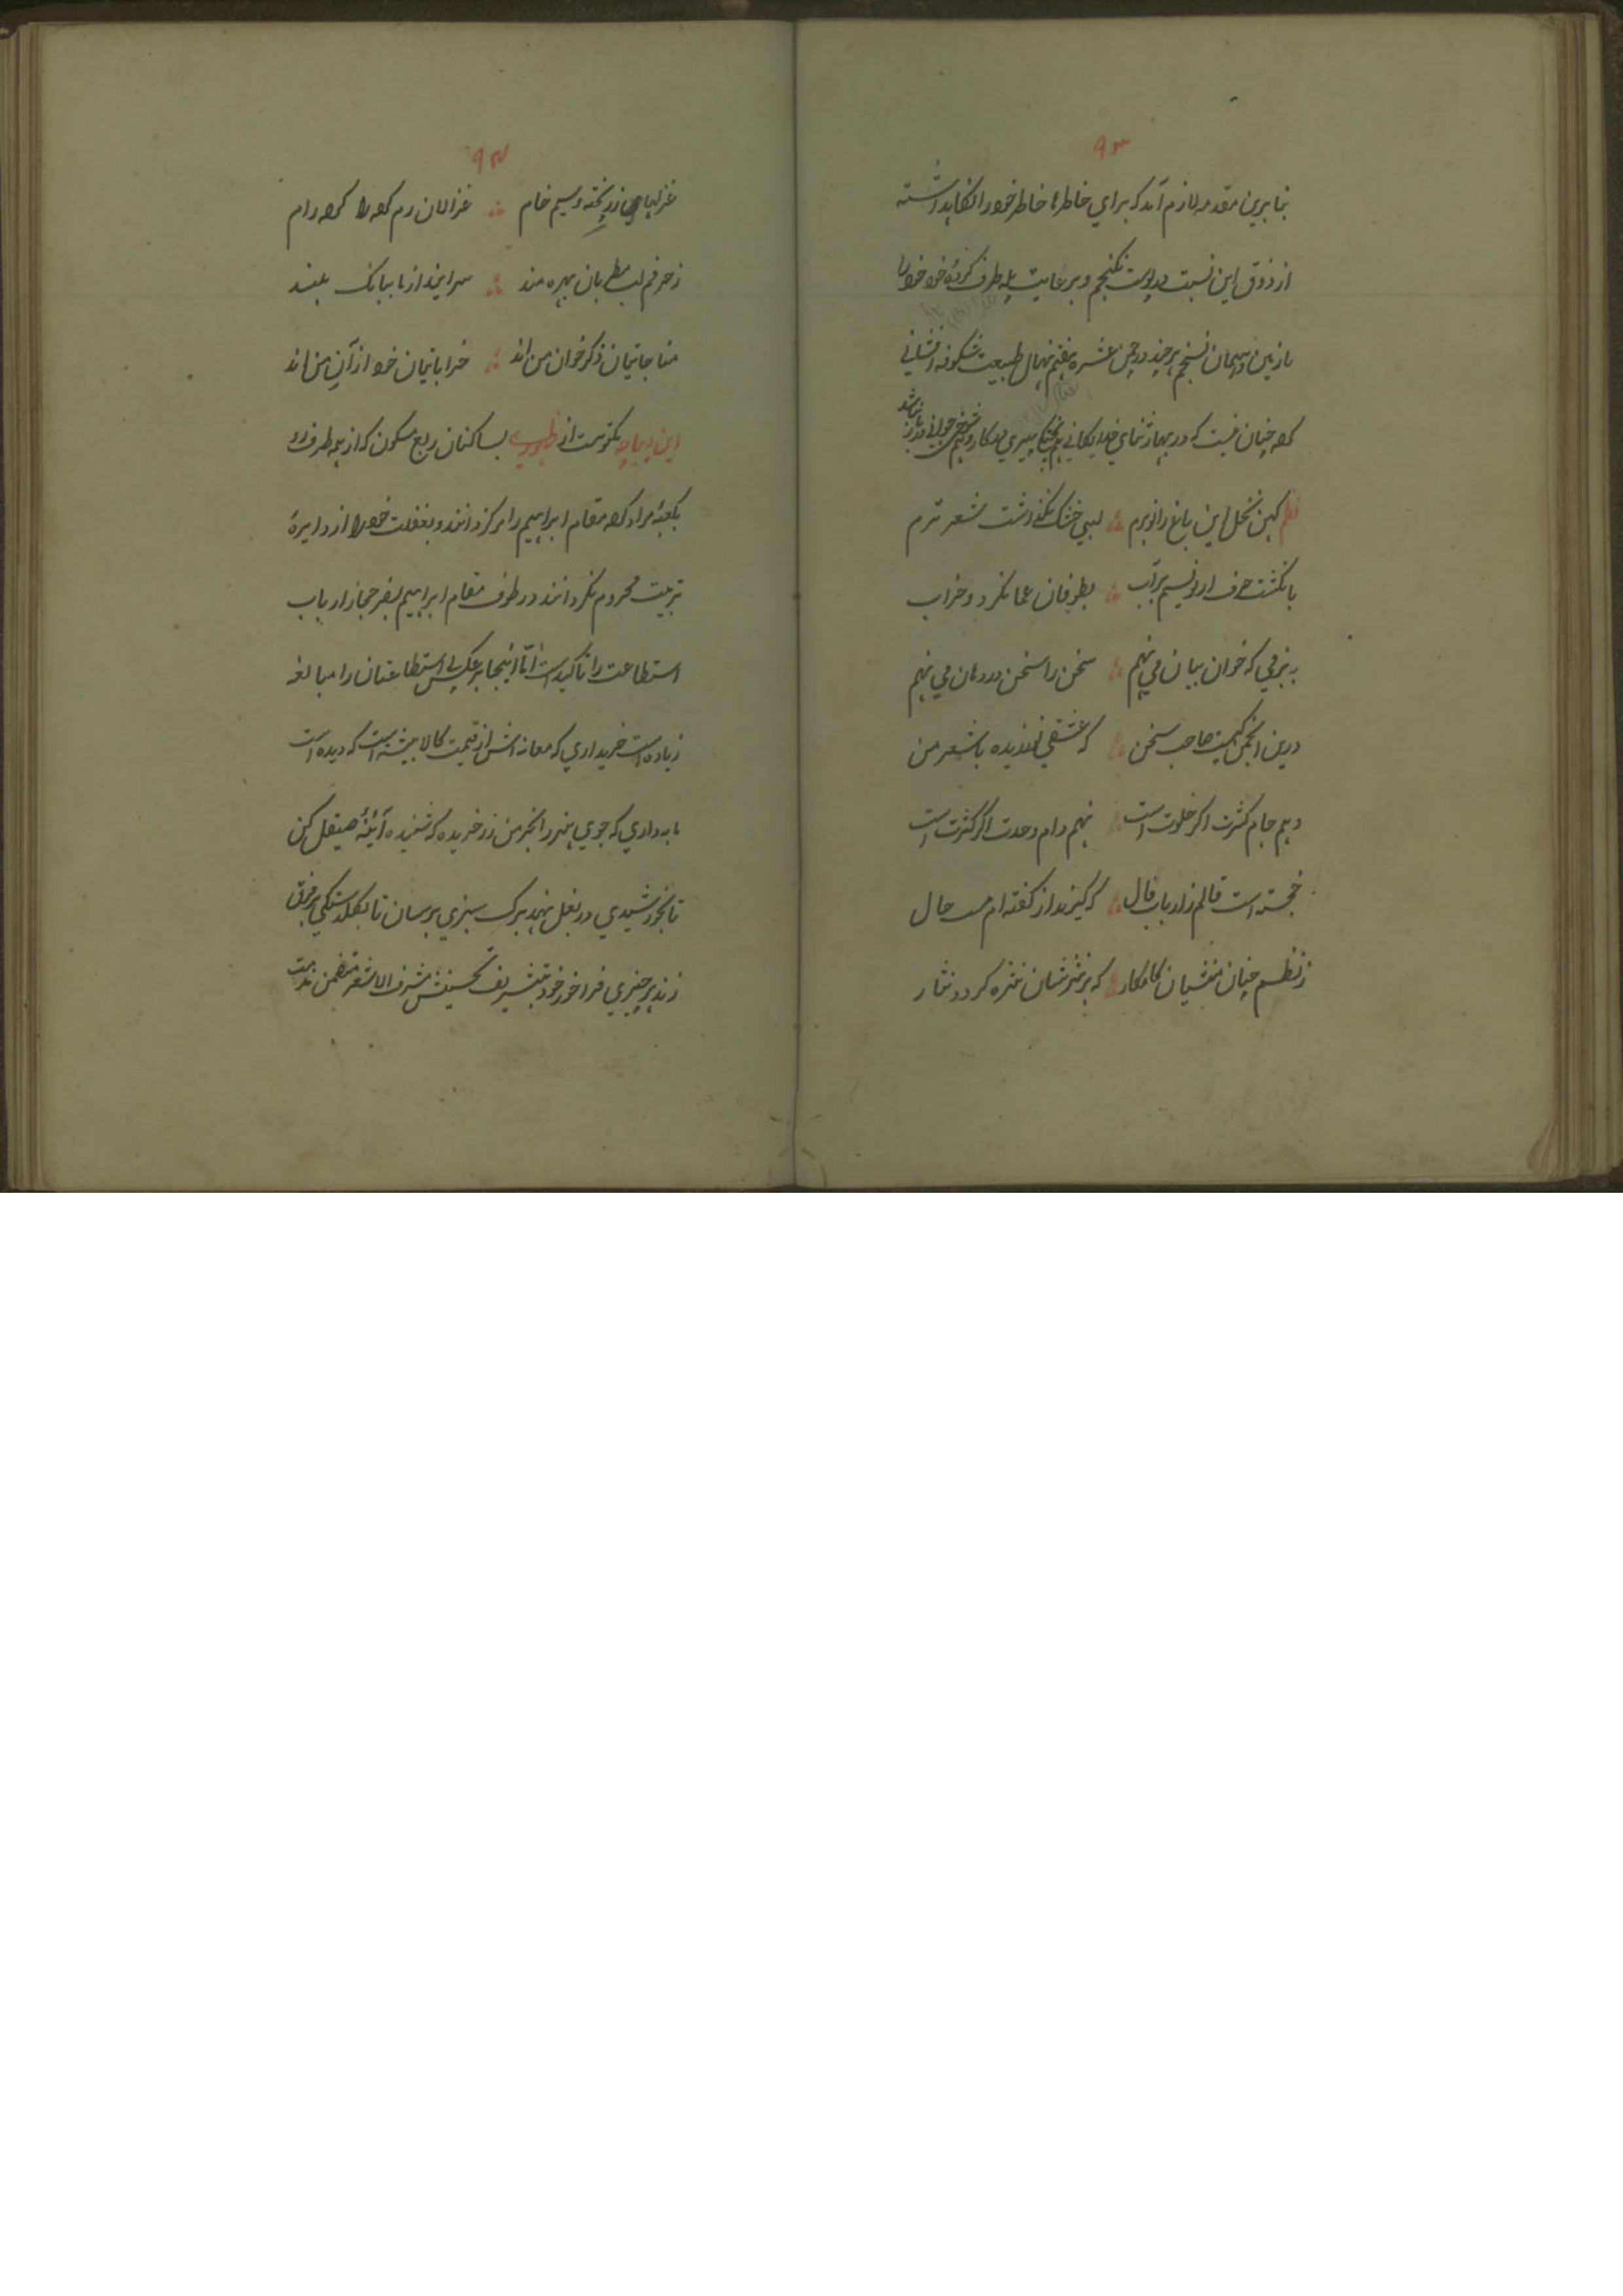 ۹۳
بنابرین مقدمه لازم آمد که برای خاطرها خاطر خود را نگاه داشته
از ذوق این نسبت در پوست نگنجم و برعایت پله طرف کرده خود خود را
با زمین و آسمان نسنجم هرچند در چمن عشره هفتم نهال طبیعت شکوفه افشانی
کرده چنان نیست که در بهار ثنای خدایگانی پیری در کار
نظم کهن نخل این باغ را نوبرم لبی خشک نگذاشت شعر ترم
بانگشت حرف ار نویسم بر آب بطوفان عما نگردد خراب
به بزمی که خوان بیان می نهم سخن را سخن در دهان می نهم
درین انجمن کیست صاحب سخن که عشقی نورزیده با شعر من
دهم جام کثرت اگر خلوت است نهم دام وحدت اگر کثرت است
خجسته است فالم ز ارباب قال که گیرند از گفته ام حسب حال
ز نظم چنان منشیان کامکار که بر نثر شان نثره گردد نثار
۹۴
غزلهای زر پخته و سیم خام غزالان رم کرده را کرده رام
ز حرفم لب مطربان بهره مند سرایند ازنا ببانگ بلند
مناجاتیان ذکر خوان من اند خراباتیان خود از آن من اند
این دیباچه مکتوبست از ظهوری بساکنان ربع مسکون که از هر طرف رو
بکعبه مراد کرده مقام ابراهیم را مرکز دانند و بغفلت خود را از دایرهٔ
تربیت محروم نگردانند در طوف مقام ابراهیم بسفر حجاز ارباب
استطاعت را تاکید است اما اینجا برعکس بی استطاعتان را مبالغه
زیاده است خریداری که معانه اش از قیمت کالا بیشتر است که دیده است
مایه داری که جوی هنر را بخرمن زر خریده که شنیده آئینهٔ صیقل کن
تا خورشیدی در بغل نهد برگ سبزی برسان تا گلدستگی بر فرق
زند هر چیزی فراخور خود بتشریف تحسینش مشرف الا شعر متضمن